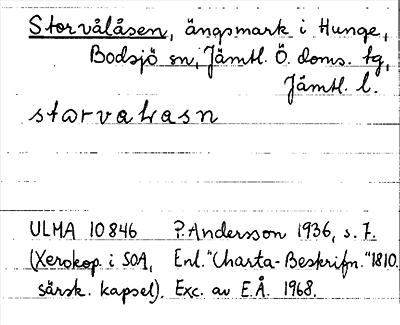 Storvålåsen, ängsmark i Hunge,
Bodsjö sn, Jämtl. Ö. doms. tg,
Jämtl. l.
storvalasn
ULMA 10846 P. Andersson 1936, s. 7.
(Xerokop. i SOA, Enl. "Charta-Beskrifn." 1810.
särsk. kapsel). Exc. av E.Å. 1968.